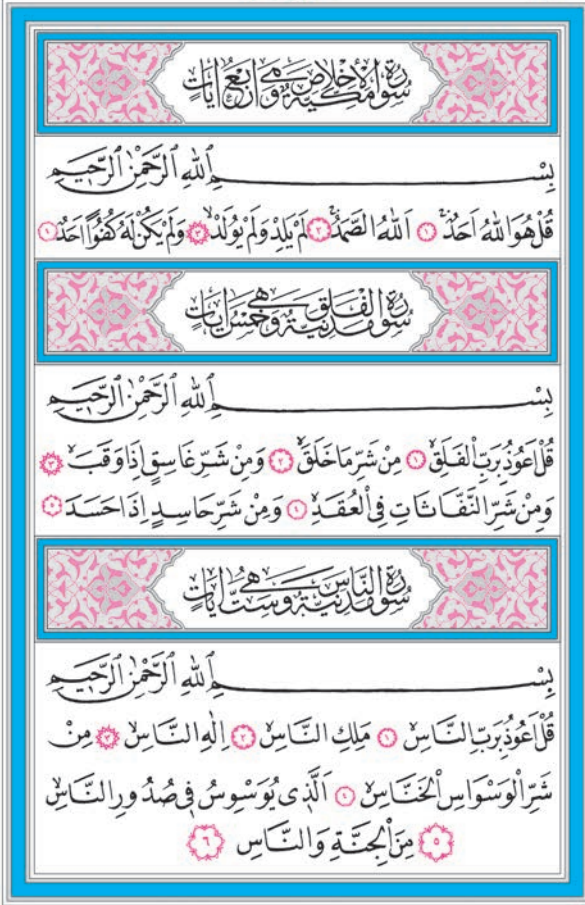 سُورَةُ الْإِخْلَاصِ مَكِّيَّةٌ وَهِيَ اَرْبَعُ اٰيَاتٍ
بِسْــــــــمِ اللّٰهِ الرَّحْمٰنِ الرَّحٖيمِ
قُلْ هُوَ اللّٰهُ اَحَدٌۚ ١ اَللّٰهُ الصَّمَدُۚ ٢ لَمْ يَلِدْ وَلَمْ يُولَدْۙ ٣ وَلَمْ يَكُنْ لَهُ كُفُوًا اَحَدٌ ٤
سُورَةُ الْفَلَقِ مَدَنِيَّةٌ وَهِيَ خَمْسُ اٰيَاتٍ
بِسْــــــــمِ اللّٰهِ الرَّحْمٰنِ الرَّحٖيمِ
قُلْ اَعُوذُ بِرَبِّ الْفَلَقِۙ ١ مِنْ شَرِّ مَا خَلَقَۙ ٢ وَمِنْ شَرِّ غَاسِقٍ اِذَا وَقَبَۙ ٣
وَمِنْ شَرِّ النَّفَّاثَاتِ فِي الْعُقَدِۙ ٤ وَمِنْ شَرِّ حَاسِدٍ اِذَا حَسَدَ ٥
سُورَةُ النَّاسِ مَدَنِيَّةٌ وَهِيَ سِتُّ اٰيَاتٍ
بِسْــــــــمِ اللّٰهِ الرَّحْمٰنِ الرَّحٖيمِ
قُلْ اَعُوذُ بِرَبِّ النَّاسِۙ ١ مَلِكِ النَّاسِۙ ٢ اِلٰهِ النَّاسِۙ ٣ مِنْ
شَرِّ الْوَسْوَاسِ الْخَنَّاسِۙ ٤ اَلَّذٖى يُوَسْوِسُ فٖى صُدُورِ النَّاسِۙ
٥ مِنَ الْجِنَّةِ وَالنَّاسِ ٦